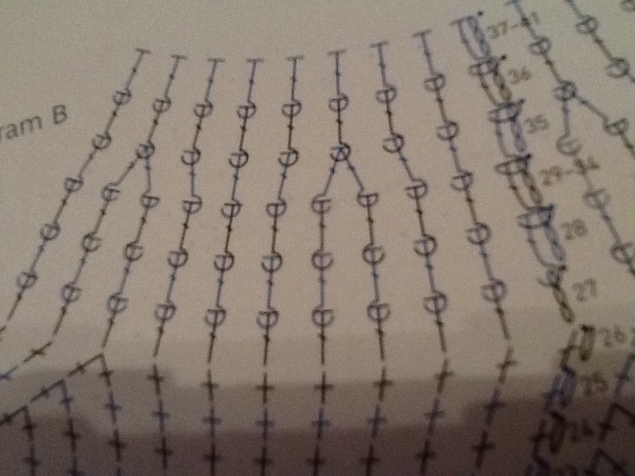 ram B
37-41
36
35
29-34
28
27
26
25
24